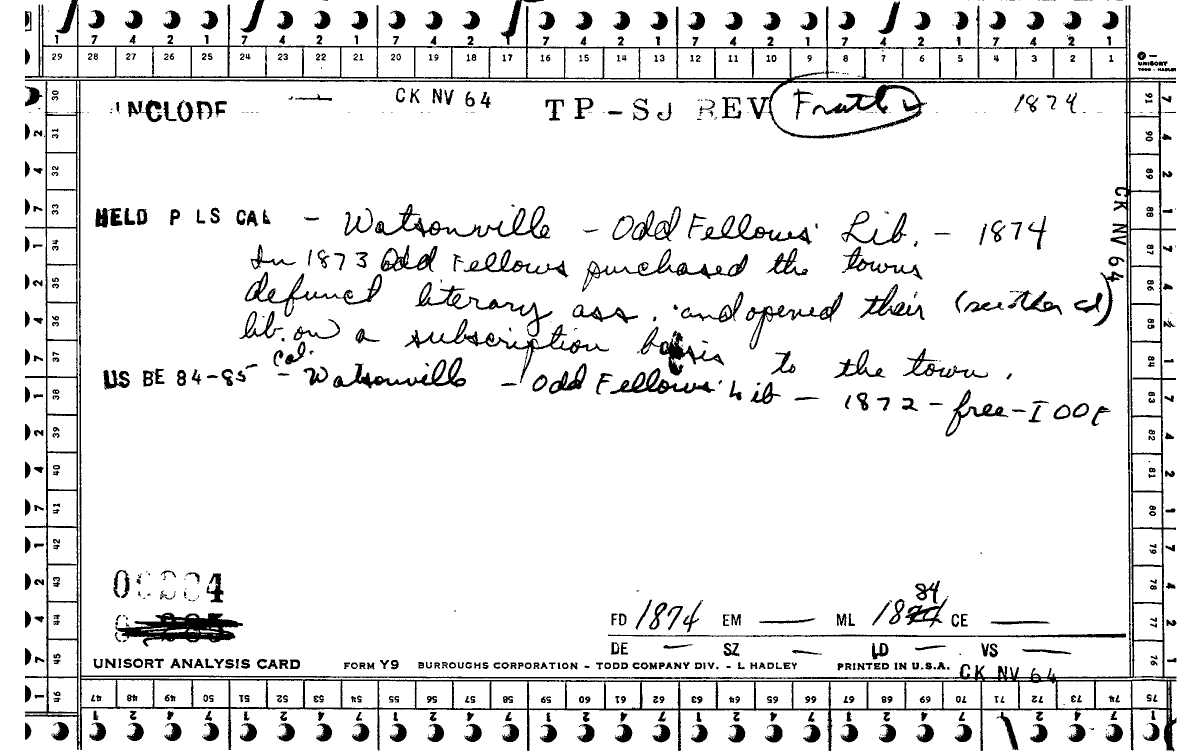 7 4 2 1 7 4 2 1 7 4 2 1 7 4 2 1 7 4 2 1 7 4 2 1 7 4 2 1
29 28 27 26 25 24 23 22 21 20 19 18 17 16 15 14 13 12 11 10 9 8 7 6 5 4 3 2 1
UNISORT
TODD - HADLEY
INCLUDE — CK NV 64 TP-SJ REV 1874
HELD P LS CAL - Watsonville - Odd Fellows' Lib. - 1874
In 1873 Odd Fellows purchased the towns
defunct literary ass. and opened their
lib. on a subscription basis to the town.
US BE 84-85 - Cal. Watsonville - Odd Fellows' Lib - 1872 - free - IOOF
CK NV 64
FD 1874 EM — ML 1884 CE —
DE — SZ — LD — VS —
UNISORT ANALYSIS CARD FORM Y9 BURROUGHS CORPORATION - TODD COMPANY DIV. - L HADLEY PRINTED IN U.S.A.
CK NV 64
30 31 32 33 34 35 36 37 38 39 40 41 42 43 44 45 46
47 48 49 50 51 52 53 54 55 56 57 58 59 60 61 62 63 64 65 66 67 68 69 70 71 72 73 74 75
91 90 89 88 87 86 85 84 83 82 81 80 79 78 77 76